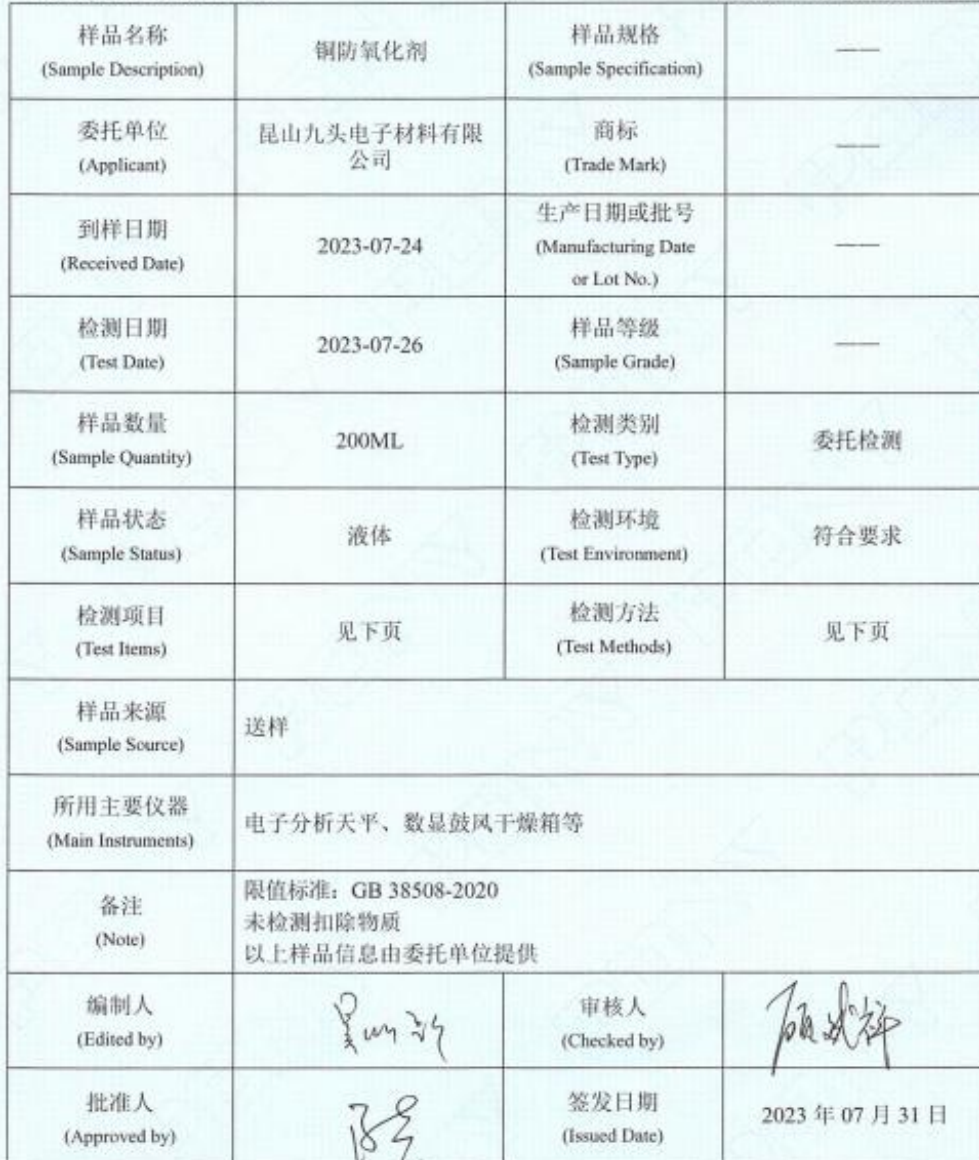 样品名称
(Sample Description)
铜防氧化剂
样品规格
(Sample Specification)
——
委托单位
(Applicant)
昆山九头电子材料有限
公司
商标
(Trade Mark)
——
到样日期
(Received Date)
2023-07-24
生产日期或批号
(Manufacturing Date
or Lot No.)
——
检测日期
(Test Date)
2023-07-26
样品等级
(Sample Grade)
——
样品数量
(Sample Quantity)
200ML
检测类别
(Test Type)
委托检测
样品状态
(Sample Status)
液体
检测环境
(Test Environment)
符合要求
检测项目
(Test Items)
见下页
检测方法
(Test Methods)
见下页
样品来源
(Sample Source)
送样
所用主要仪器
(Main Instruments)
电子分析天平、数显鼓风干燥箱等
备注
(Note)
限值标准：GB 38508-2020
未检测扣除物质
以上样品信息由委托单位提供
编制人
(Edited by)
审核人
(Checked by)
批准人
(Approved by)
签发日期
(Issued Date)
2023 年 07 月 31 日